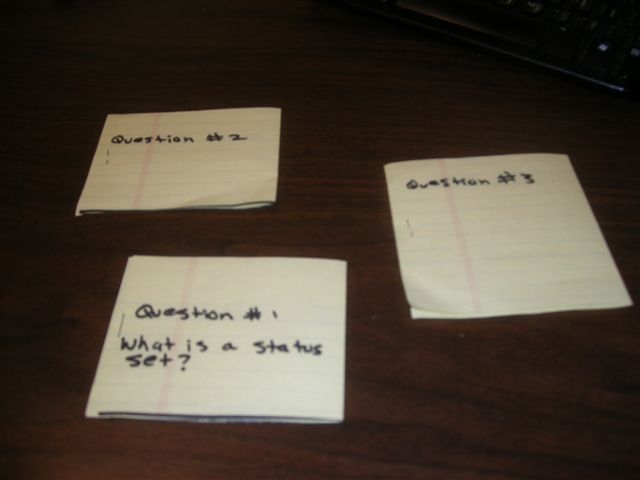 Question #2
Question #3
Question #1
What is a status
set?